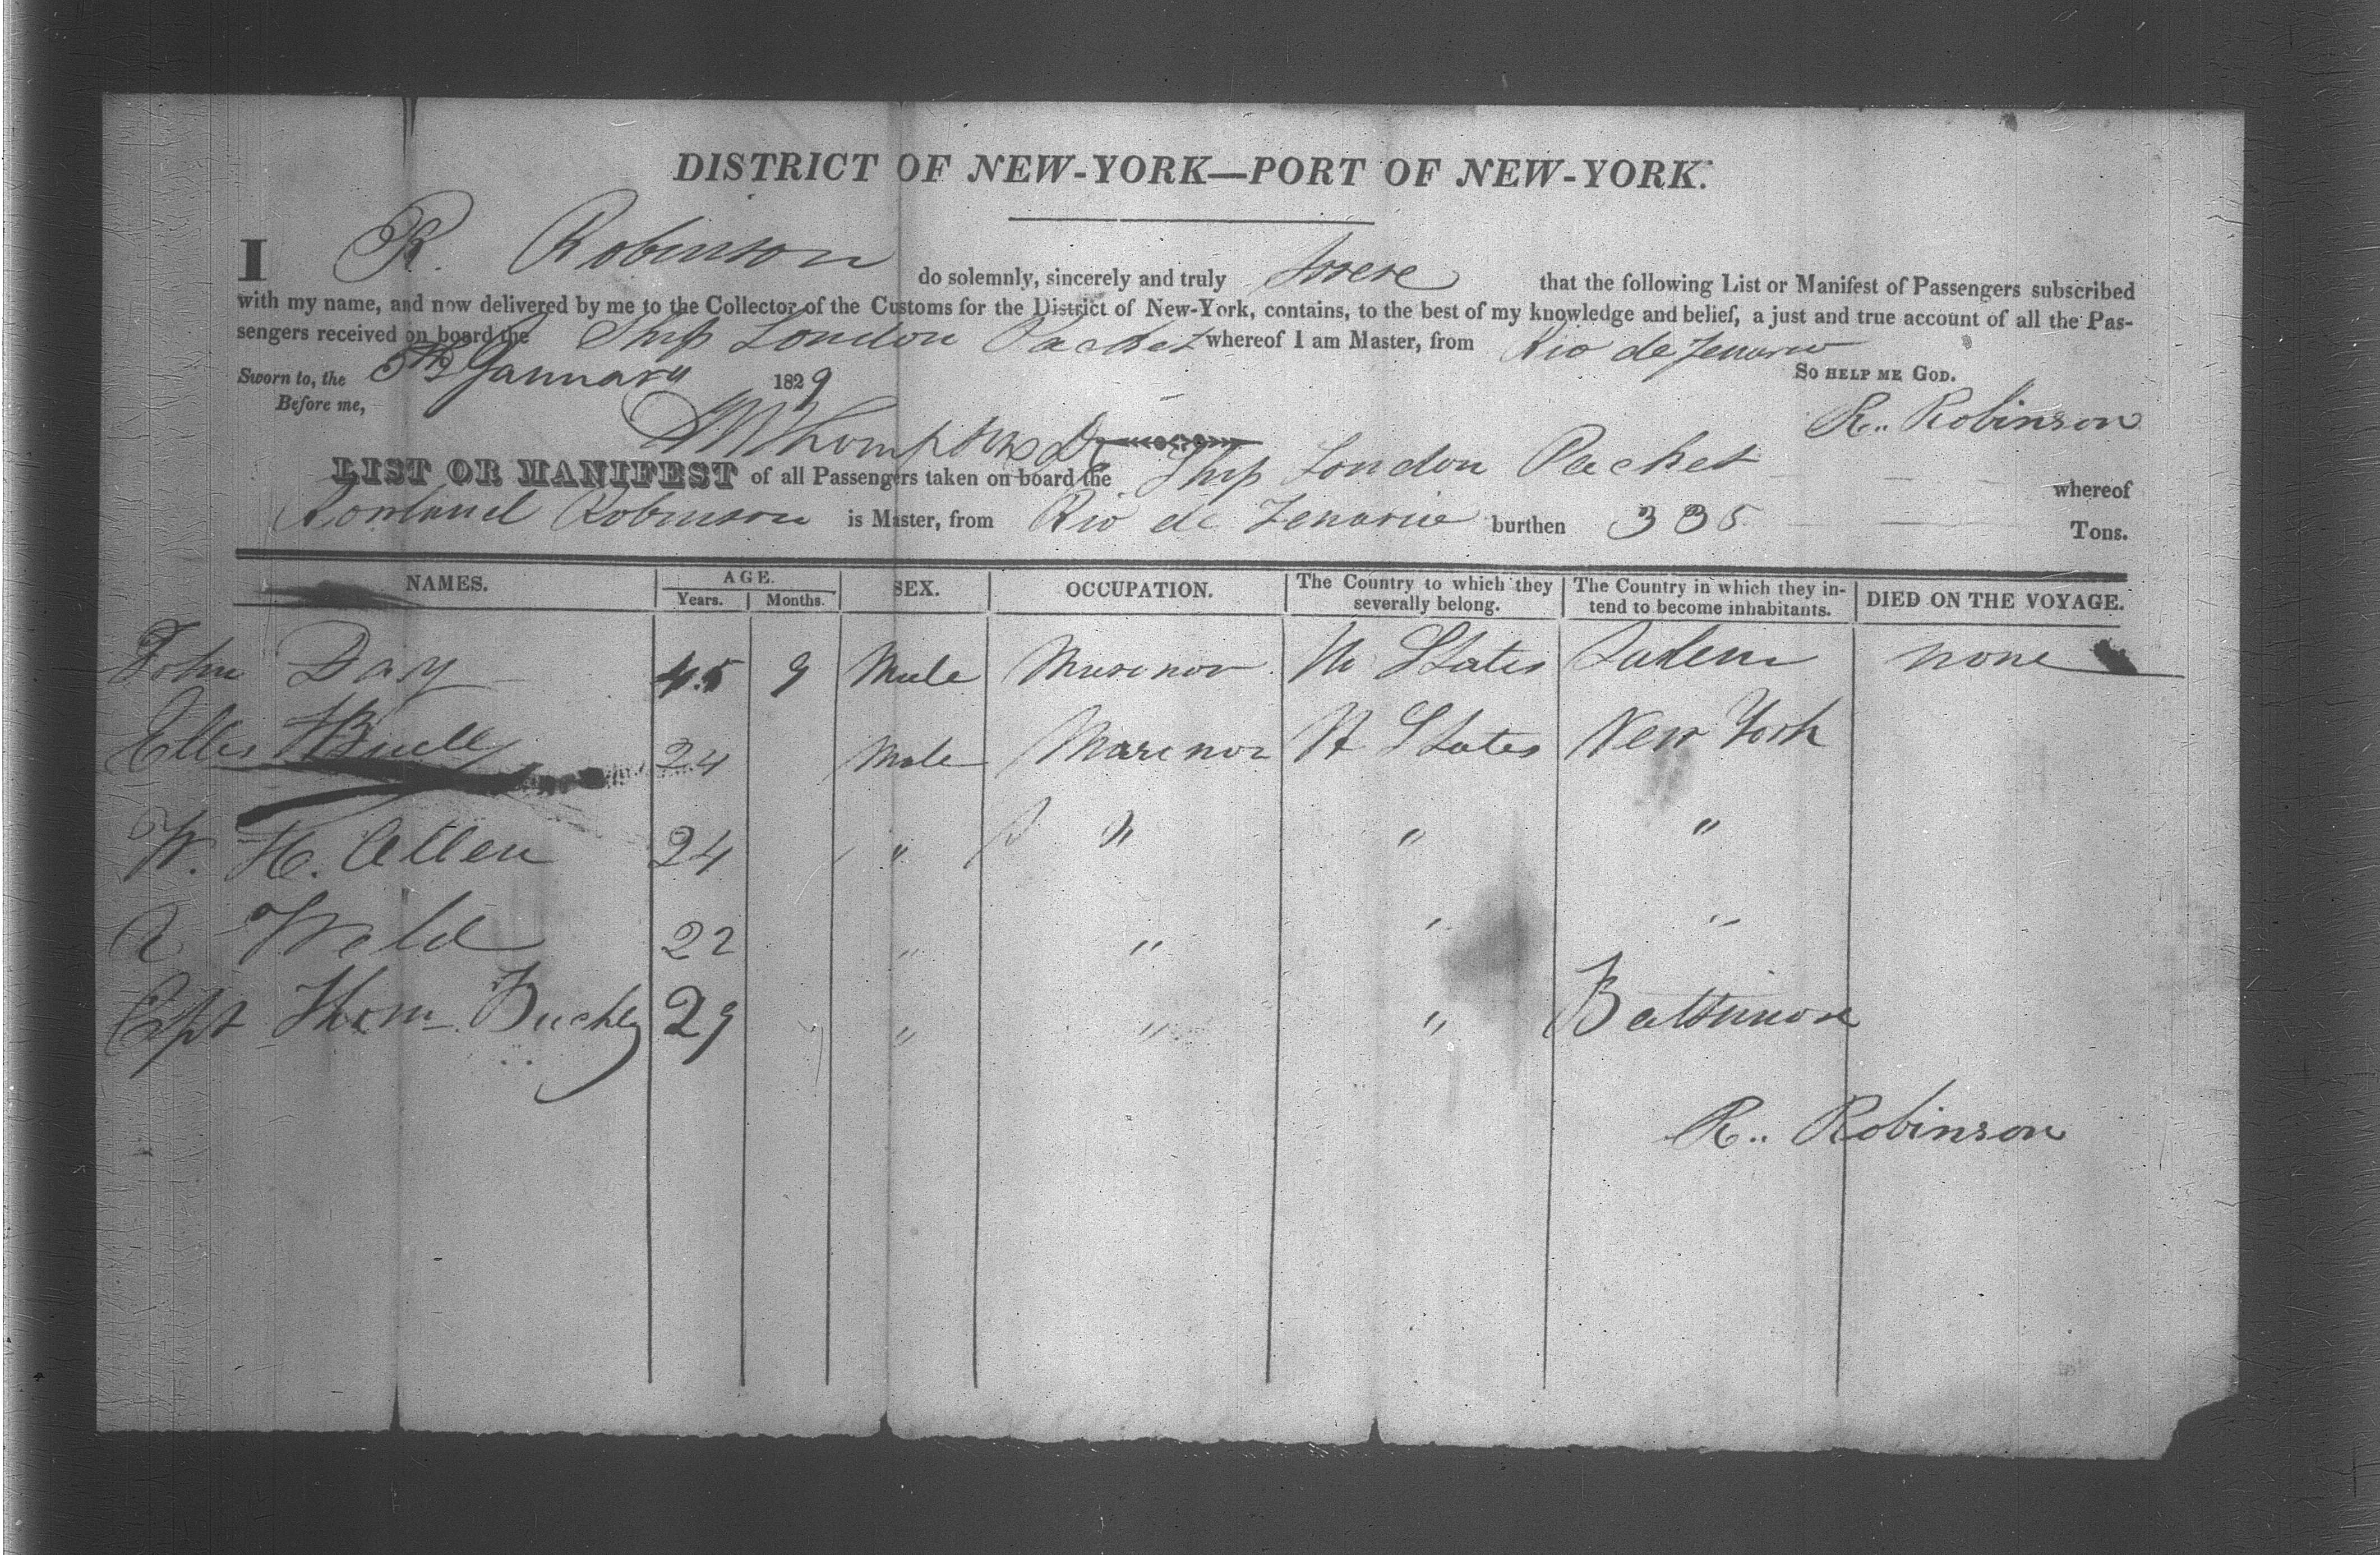 DISTRICT OF NEW-YORK—PORT OF NEW-YORK.
I R. Robinson do solemnly, sincerely and truly that the following List or Manifest of Passengers subscribed
with my name, and now delivered by me to the Collector of the Customs for the District of New-York, contains, to the best of my knowledge and belief, a just and true account of all the Pas-
sengers received on board the Ship London Packet whereof I am Master, from Rio de Jenario
So HELP ME GOD.
Sworn to, the 5th January 1829
Before me,
R. Robinson
Thompson
LIST OR MANIFEST of all Passengers taken on board the Ship London Packet whereof
Rowland Robinson is Master, from Rio de Jenario burthen 335 Tons.
NAMES. AGE. Years. Months. SEX. OCCUPATION. The Country to which they severally belong. The Country in which they in- tend to become inhabitants. DIED ON THE VOYAGE.
John Day 45 9 Male Marenor U States Salem none
Ellis Buell 24 Male Marenor U States New York
W. H. Allen 24 " " " "
Weld 22 " " " "
Capt Thom Buckly 29 " " " Baltimore
R. Robinson